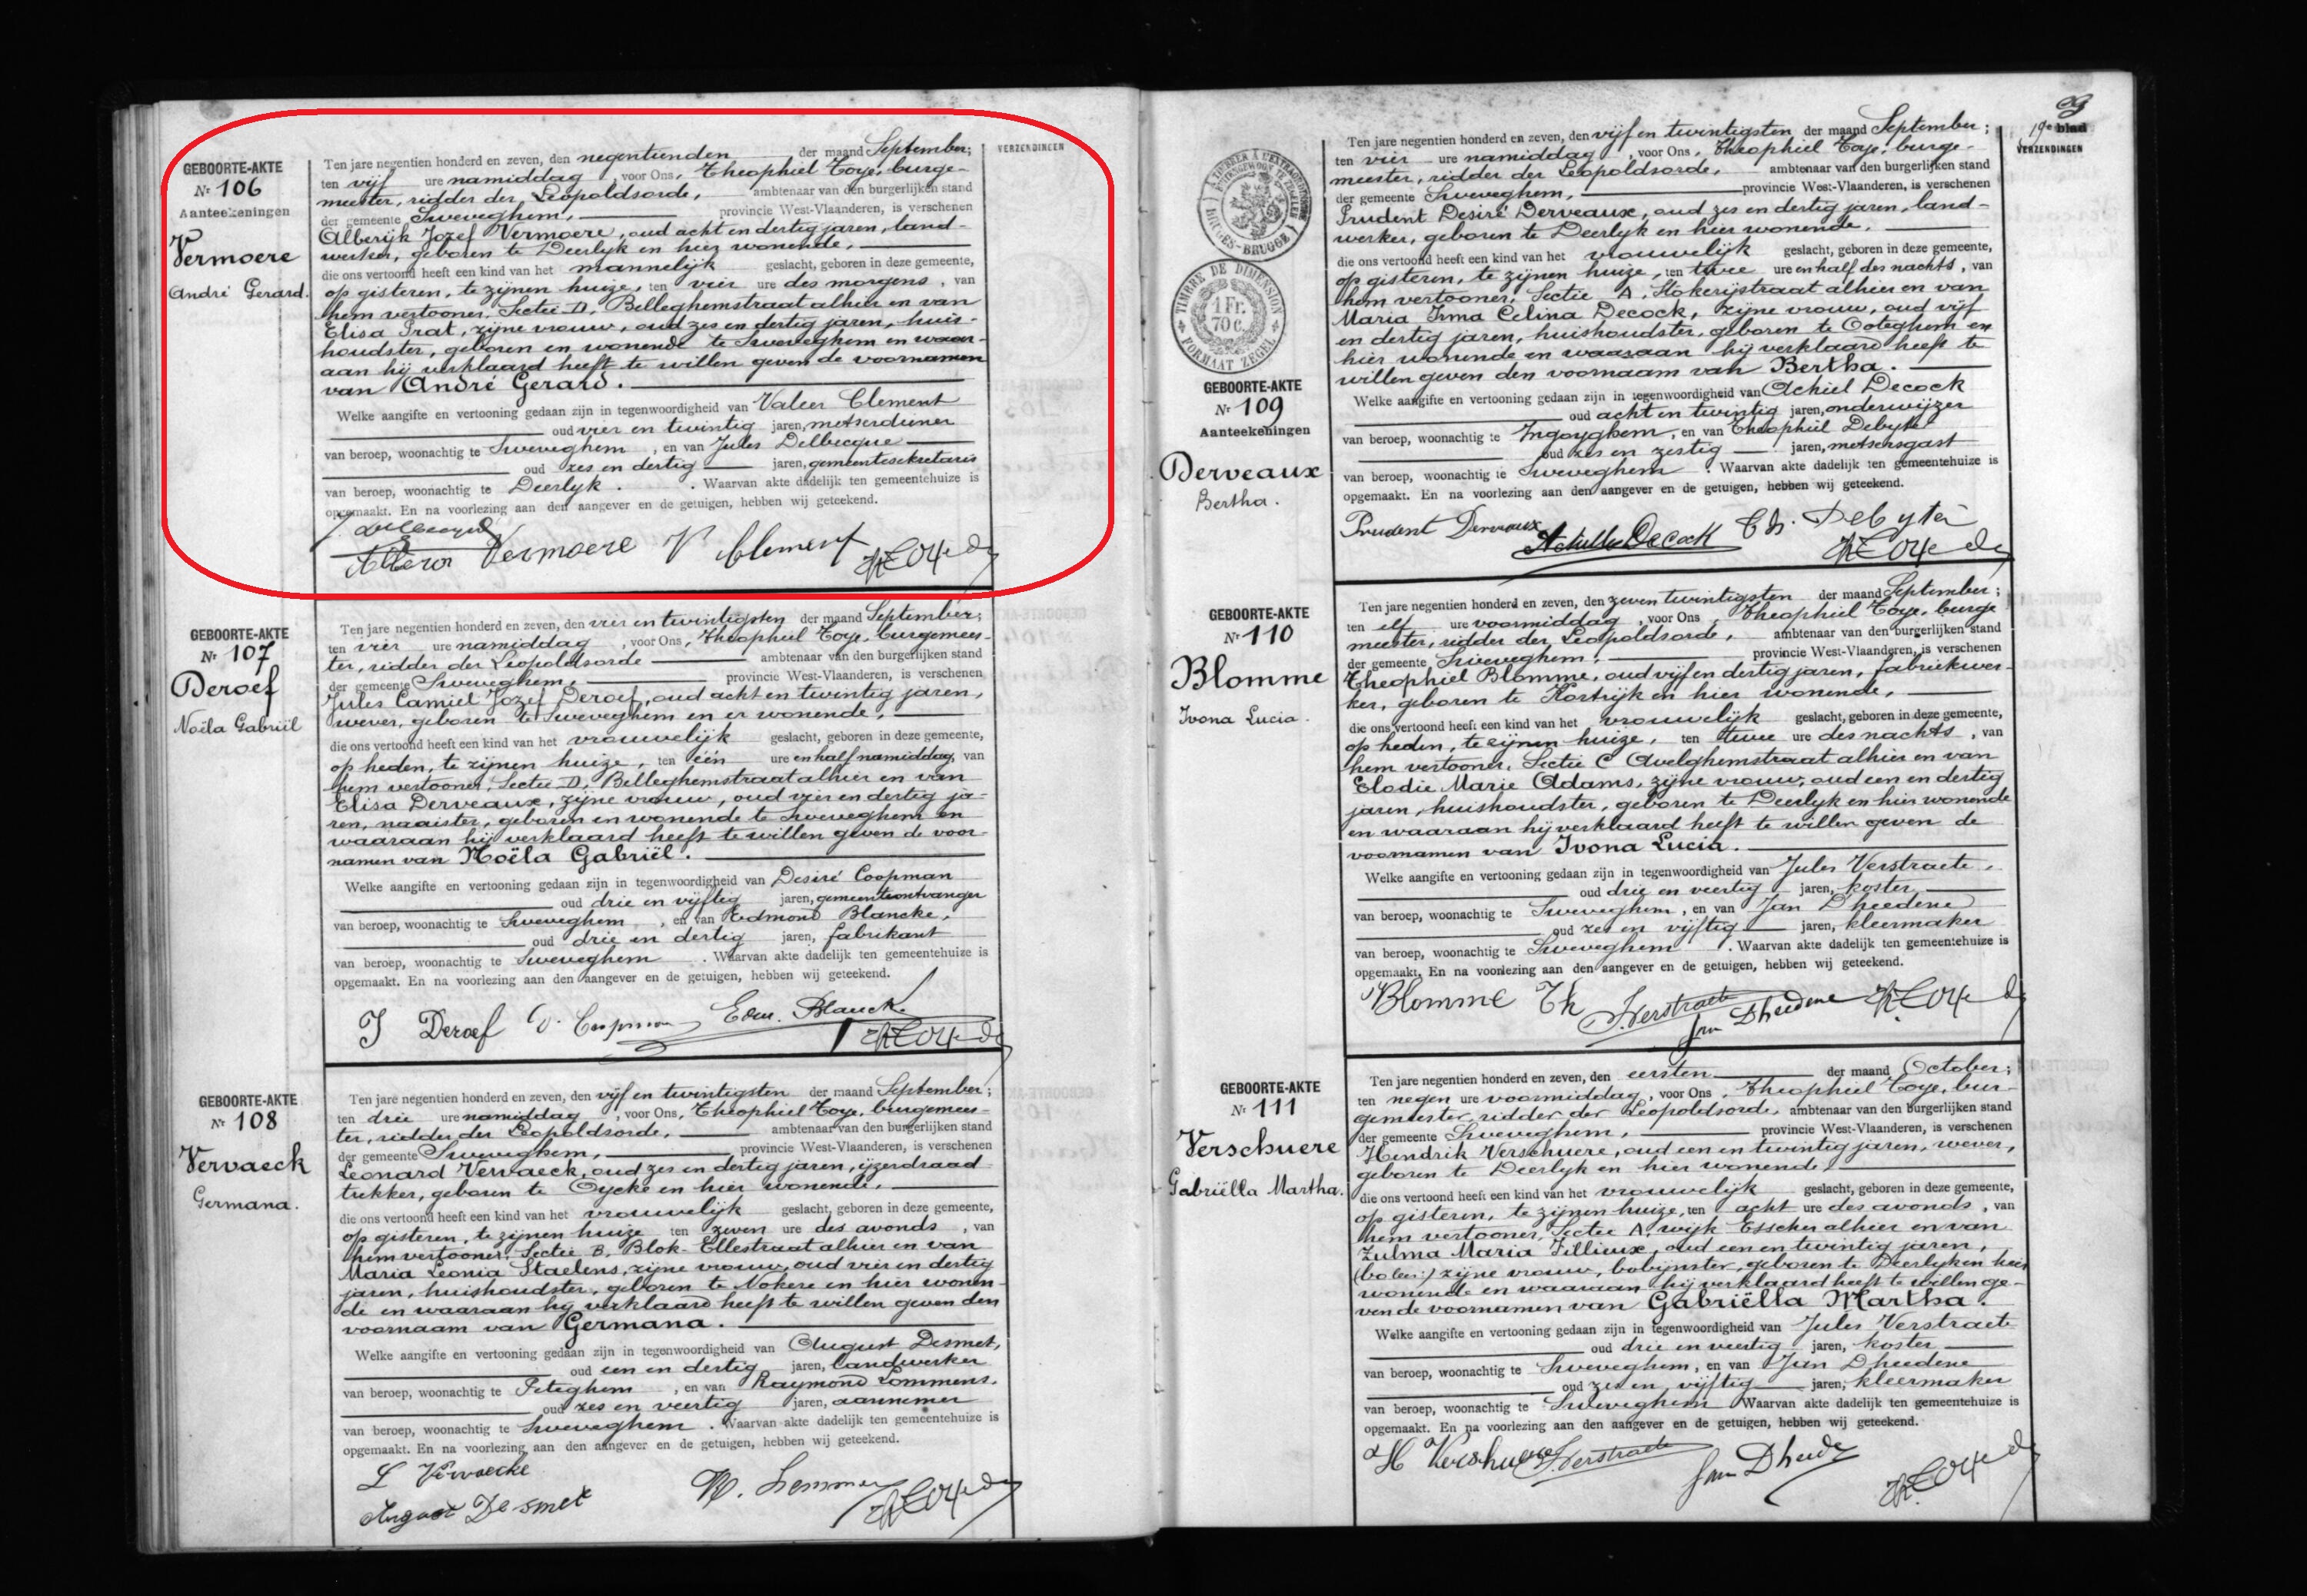 GEBOORTE-AKTE
Nr 106
Aanteekeningen
Vermoere
André Gerard.
Ten jare negentien honderd en zeven, den negentienden der maand September;
ten vijf ure namiddag, voor Ons, Theophiel Toye, burge-
meester, ridder der Leopoldsorde, ambtenaar van den burgerlijken stand
der gemeente Sweveghem, provincie West-Vlaanderen, is verschenen
Alberijk Jozef Vermoere, oud acht en dertig jaren, land-
werker, geboren te Deerlyk en hier wonende,
die ons vertoond heeft een kind van het mannelijk geslacht, geboren in deze gemeente,
op gisteren, te zijnen huize, ten vier ure des morgens, van
hem vertooner, Sectie D, Belleghemstraat alhier en van
Elisa Prat, zijne vrouw, oud zes en dertig jaren, huis-
houdster, geboren en wonende te Sweveghem en waar-
aan hij verklaard heeft te willen geven de voornamen
van André Gerard.
Welke aangifte en vertooning gedaan zijn in tegenwoordigheid van Valeer Clement
oud vier en twintig jaren, metserdiener
van beroep, woonachtig te Sweveghem, en van Jules Delbecque
oud zes en dertig jaren, gemeentesekretaris
van beroep, woonachtig te Deerlyk. Waarvan akte dadelijk ten gemeentehuize is
opgemaakt. En na voorlezing aan den aangever en de getuigen, hebben wij geteekend.
Vermoere V Clement
VERZENDINGEN
GEBOORTE-AKTE
Nr 107
Deroef
Noëla Gabriël
Ten jare negentien honderd en zeven, den vier en twintigsten der maand September;
ten vier ure namiddag, voor Ons, Theophiel Toye, burgemees-
ter, ridder der Leopoldsorde ambtenaar van den burgerlijken stand
der gemeente Sweveghem, provincie West-Vlaanderen, is verschenen
Jules Camiel Jozef Deroef, oud acht en twintig jaren,
wever, geboren te Sweveghem en er wonende,
die ons vertoond heeft een kind van het vrouwelijk geslacht, geboren in deze gemeente,
op heden, te zijnen huize, ten één ure en half namiddag, van
hem vertooner, Sectie D, Belleghemstraat alhier en van
Elisa Derveaux, zijne vrouw, oud vier en dertig ja-
ren, naaister, geboren en wonende te Sweveghem en
waaraan hij verklaard heeft te willen geven de voor-
namen van Noëla Gabriël.
Welke aangifte en vertooning gedaan zijn in tegenwoordigheid van Desiré Coopman
oud drie en vijftig jaren, gemeenteontvanger
van beroep, woonachtig te Sweveghem, en van Edmond Blancke,
oud drie en dertig jaren, fabrikant
van beroep, woonachtig te Sweveghem. Waarvan akte dadelijk ten gemeentehuize is
opgemaakt. En na voorlezing aan den aangever en de getuigen, hebben wij geteekend.
J Deroef D. Coopman Edm. Blancke
GEBOORTE-AKTE
Nr 108
Vervaeck
Germana.
Ten jare negentien honderd en zeven, den vijf en twintigsten der maand September;
ten drie ure namiddag, voor Ons, Theophiel Toye, burgemees-
ter, ridder der Leopoldsorde, ambtenaar van den burgerlijken stand
der gemeente Sweveghem, provincie West-Vlaanderen, is verschenen
Leonard Vervaeck, oud zes en dertig jaren, ijzerdraad-
trekker, geboren te Oycke en hier wonende,
die ons vertoond heeft een kind van het vrouwelijk geslacht, geboren in deze gemeente,
op gisteren, te zijnen huize ten zeven ure des avonds, van
hem vertooner, Sectie B, Blok-Ellestraat alhier en van
Maria Leonia Staelens, zijne vrouw, oud vier en dertig
jaren, huishoudster, geboren te Nokere en hier wonen-
de en waaraan hij verklaard heeft te willen geven den
voornaam van Germana.
Welke aangifte en vertooning gedaan zijn in tegenwoordigheid van August Desmet,
oud een en dertig jaren, landwerker
van beroep, woonachtig te Peteghem, en van Raymond Lommens,
oud zes en veertig jaren, aannemer
van beroep, woonachtig te Sweveghem. Waarvan akte dadelijk ten gemeentehuize is
opgemaakt. En na voorlezing aan den aangever en de getuigen, hebben wij geteekend.
L Vervaecke
August Desmet
19e blad
VERZENDINGEN
TIMBRE DE DIMENSION
1 Fr.
70 c.
FORMAAT ZEGEL
BRUGES-BRUGGE
GEBOORTE-AKTE
Nr 109
Aanteekeningen
Derveaux
Bertha.
Ten jare negentien honderd en zeven, den vijf en twintigsten der maand September;
ten vier ure namiddag, voor Ons, Theophiel Toye, burge-
meester, ridder der Leopoldsorde, ambtenaar van den burgerlijken stand
der gemeente Sweveghem, provincie West-Vlaanderen, is verschenen
Prudent Desiré Derveaux, oud zes en dertig jaren, land-
werker, geboren te Deerlyk en hier wonende,
die ons vertoond heeft een kind van het vrouwelijk geslacht, geboren in deze gemeente,
op gisteren, te zijnen huize, ten twee ure en half des nachts, van
hem vertooner, Sectie A, Stokerijstraat alhier en van
Maria Irma Celina Decock, zijne vrouw, oud vijf
en dertig jaren, huishoudster, geboren te Ooteghem en
hier wonende en waaraan hij verklaard heeft te
willen geven den voornaam van Bertha.
Welke aangifte en vertooning gedaan zijn in tegenwoordigheid van Achiel Decock
oud acht en twintig jaren, onderwijzer
van beroep, woonachtig te Ingoyghem, en van Theophiel Debyte
oud zes en zestig jaren, metsersgast
van beroep, woonachtig te Sweveghem. Waarvan akte dadelijk ten gemeentehuize is
opgemaakt. En na voorlezing aan den aangever en de getuigen, hebben wij geteekend.
Prudent Derveaux Achille Decock
GEBOORTE-AKTE
Nr 110
Blomme
Ivona Lucia.
Ten jare negentien honderd en zeven, den zeven twintigsten der maand September;
ten elf ure voormiddag, voor Ons, Theophiel Toye, burge
meester, ridder der Leopoldsorde, ambtenaar van den burgerlijken stand
der gemeente Sweveghem, provincie West-Vlaanderen, is verschenen
Theophiel Blomme, oud vijf en dertig jaren, fabriekwer-
ker, geboren te Kortrijk en hier wonende,
die ons vertoond heeft een kind van het vrouwelijk geslacht, geboren in deze gemeente,
op heden, te zijnen huize, ten twee ure des nachts, van
hem vertooner, Sectie C Avelghemstraat alhier en van
Elodie Marie Adams, zijne vrouw, oud een en dertig
jaren, huishoudster, geboren te Deerlyk en hier wonende
en waaraan hij verklaard heeft te willen geven de
voornamen van Ivona Lucia.
Welke aangifte en vertooning gedaan zijn in tegenwoordigheid van Jules Verstraete,
oud drie en veertig jaren, koster
van beroep, woonachtig te Sweveghem, en van Jan Dheedene
oud zes en vijftig jaren, kleermaker
van beroep, woonachtig te Sweveghem. Waarvan akte dadelijk ten gemeentehuize is
opgemaakt. En na voorlezing aan den aangever en de getuigen, hebben wij geteekend.
Blomme Th J. Verstraete Jan Dheedene
GEBOORTE-AKTE
Nr 111
Verschuere
Gabriëlla Martha.
Ten jare negentien honderd en zeven, den eersten der maand October;
ten negen ure voormiddag, voor Ons, Theophiel Toye, bur-
gemeester, ridder der Leopoldsorde, ambtenaar van den burgerlijken stand
der gemeente Sweveghem, provincie West-Vlaanderen, is verschenen
Hendrik Verschuere, oud een en twintig jaren, wever,
geboren te Deerlyk en hier wonende,
die ons vertoond heeft een kind van het vrouwelijk geslacht, geboren in deze gemeente,
op gisteren, te zijnen huize, ten acht ure des avonds, van
hem vertooner, Sectie A, wijk Esscher alhier en van
Zulma Maria Tillieux, oud een en twintig jaren,
zijne vrouw, bobijnster, geboren te Deerlyk en hier
wonende en waaraan hij verklaard heeft te willen ge-
ven de voornamen van Gabriëlla Martha.
Welke aangifte en vertooning gedaan zijn in tegenwoordigheid van Jules Verstraete
oud drie en veertig jaren, koster
van beroep, woonachtig te Sweveghem, en van Jan Dheedene
oud zes en vijftig jaren, kleermaker
van beroep, woonachtig te Sweveghem Waarvan akte dadelijk ten gemeentehuize is
opgemaakt. En na voorlezing aan den aangever en de getuigen, hebben wij geteekend.
H Verschuere J. Verstraete